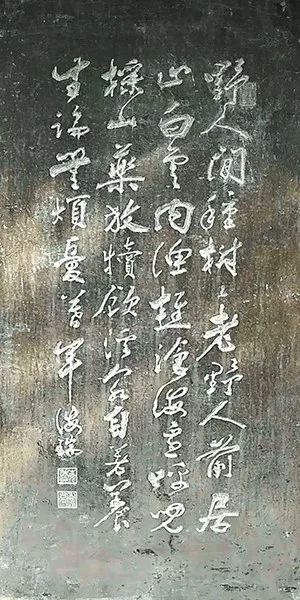 野人閒種樹々老野人前居
止白雲內漁樵滄海邊呼兒
採山藥放犢飲溪泉自著養
生論無煩憂暮年 海瑞